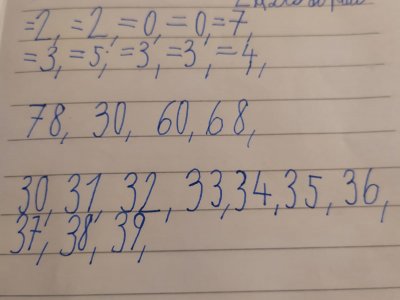 =2, =2, =0, =0, =7,
=3, =5, =3, =3, =4,
78, 30, 60, 68,
30, 31, 32, 33, 34, 35, 36,
37, 38, 39,